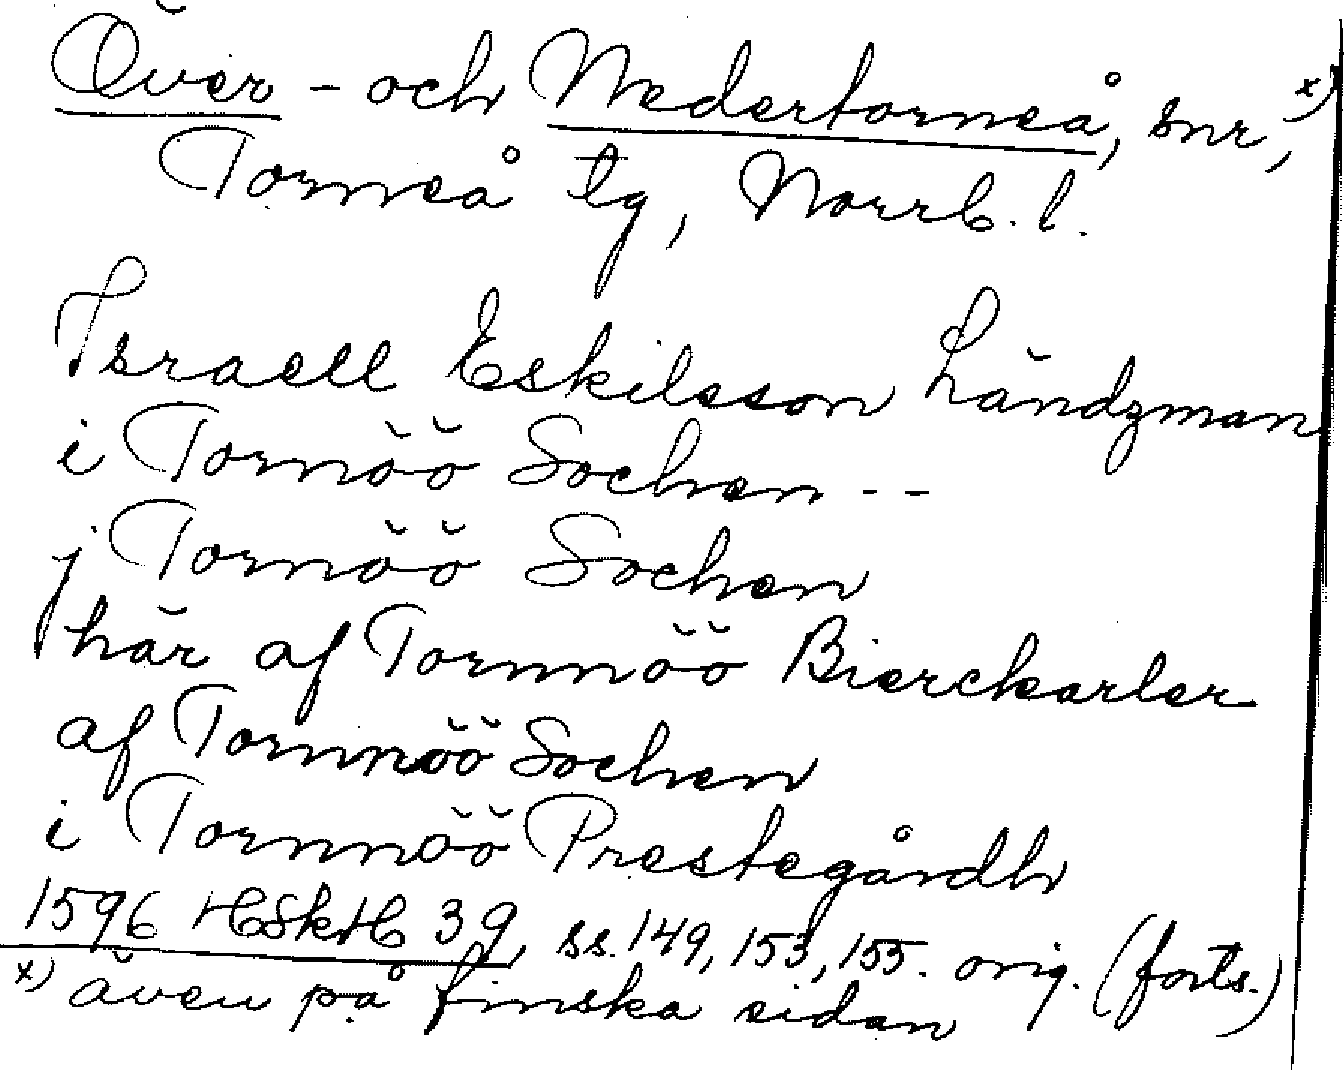 Över - och Nedertorneå, snr, x)
Torneå tg, Norrb. l.
Israell Eskilsson Ländzman
i Tornöö Sochen --
j Tornöö Sochen
här af Tornnöö Bierckarler
af Tornnöö Sochen
i Tornnöö Prestegårdh
1596 HSkH 39, ss. 149, 153, 155. orig. (forts.)
x) även på finska sidan